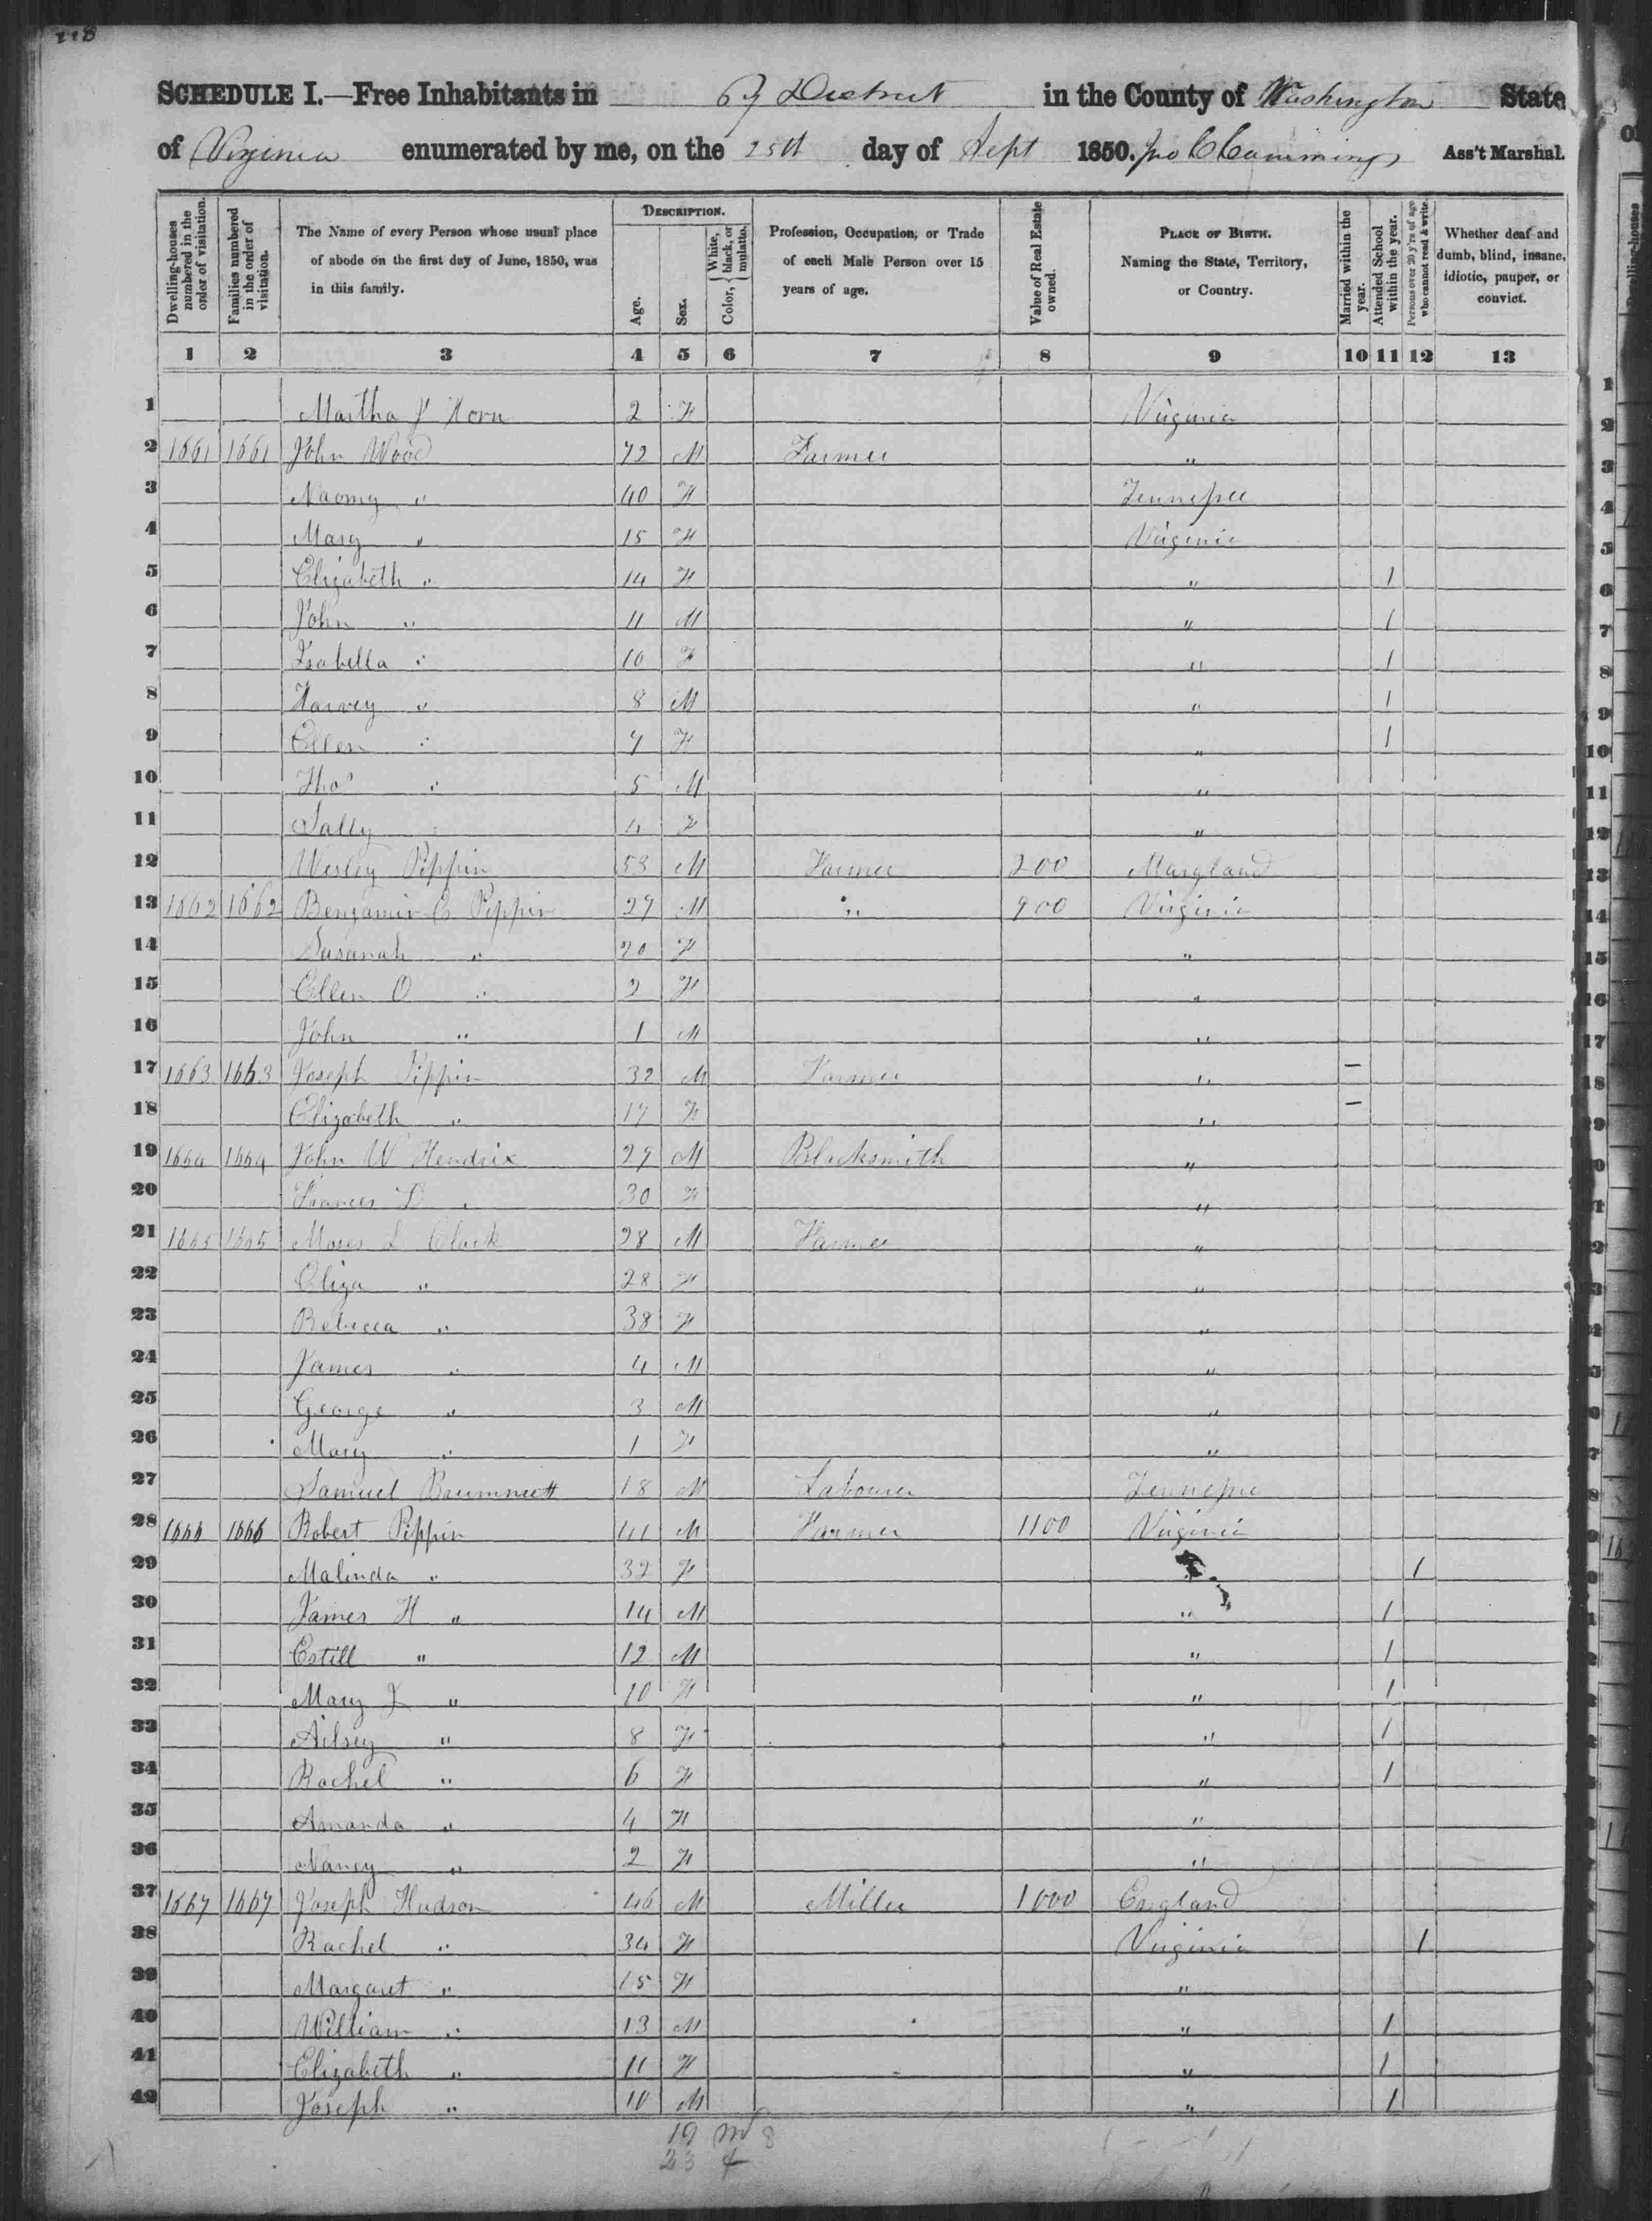 SCHEDULE I.—Free Inhabitants in 67 District in the County of Washington State
of Virginia enumerated by me, on the 25th day of Sept 1850. Jno C Cummings Ass't Marshal.
Dwelling-houses numbered in the order of visitation. Families numbered in the order of visitation. The Name of every Person whose usual place of abode on the first day of June, 1850, was in this family. DESCRIPTION. Age. Sex. Color, { White, black, or mulatto. Profession, Occupation, or Trade of each Male Person over 15 years of age. Value of Real Estate owned. PLACE OF BIRTH. Naming the State, Territory, or Country. Married within the year. Attended School within the year. Persons over 20 y'rs of age who cannot read & write. Whether deaf and dumb, blind, insane, idiotic, pauper, or convict.
1 2 3 4 5 6 7 8 9 10 11 12 13
1 Martha J Horn 2 F Virginia
2 1661 1661 John Wood 72 M Farmer "
3 Naomy " 40 F Tennessee
4 Mary " 15 F Virginia
5 Elizabeth " 14 F " 1
6 John " 11 M " 1
7 Isabella " 10 F " 1
8 Harvey " 8 M " 1
9 Ellen " 7 F " 1
10 Thos " 5 M "
11 Sally " 4 F "
12 Wesley Pippin 53 M Farmer 200 Maryland
13 1662 1662 Benjamin C Pippin 27 M " 900 Virginia
14 Susanah " 20 F "
15 Ellen O " 2 F "
16 John " 1 M "
17 1663 1663 Joseph Pippin 32 M Farmer " –
18 Elizabeth " 17 F " –
19 1664 1664 John W Hendrix 27 M Blacksmith "
20 Frances D " 30 F "
21 1665 1665 Moses L Clark 28 M Farmer "
22 Eliza " 28 F "
23 Rebecca " 38 F "
24 James " 4 M "
25 George " 3 M "
26 Mary " 1 F "
27 Samuel Brummett 18 M Labourer Tennessee
28 1666 1666 Robert Pippin 41 M Farmer 1100 Virginia
29 Malinda " 32 F " 1
30 James H " 14 M " 1
31 Estill " 12 M " 1
32 Mary J " 10 F " 1
33 Ailsey " 8 F " 1
34 Rachel " 6 F " 1
35 Amanda " 4 F "
36 Nancy " 2 F "
37 1667 1667 Joseph Hudson 46 M Miller 1000 England
38 Rachel " 34 F Virginia 1
39 Margaret " 15 F "
40 William " 13 M " 1
41 Elizabeth " 11 F " 1
42 Joseph " 10 M " 1
19 m 8
23 f